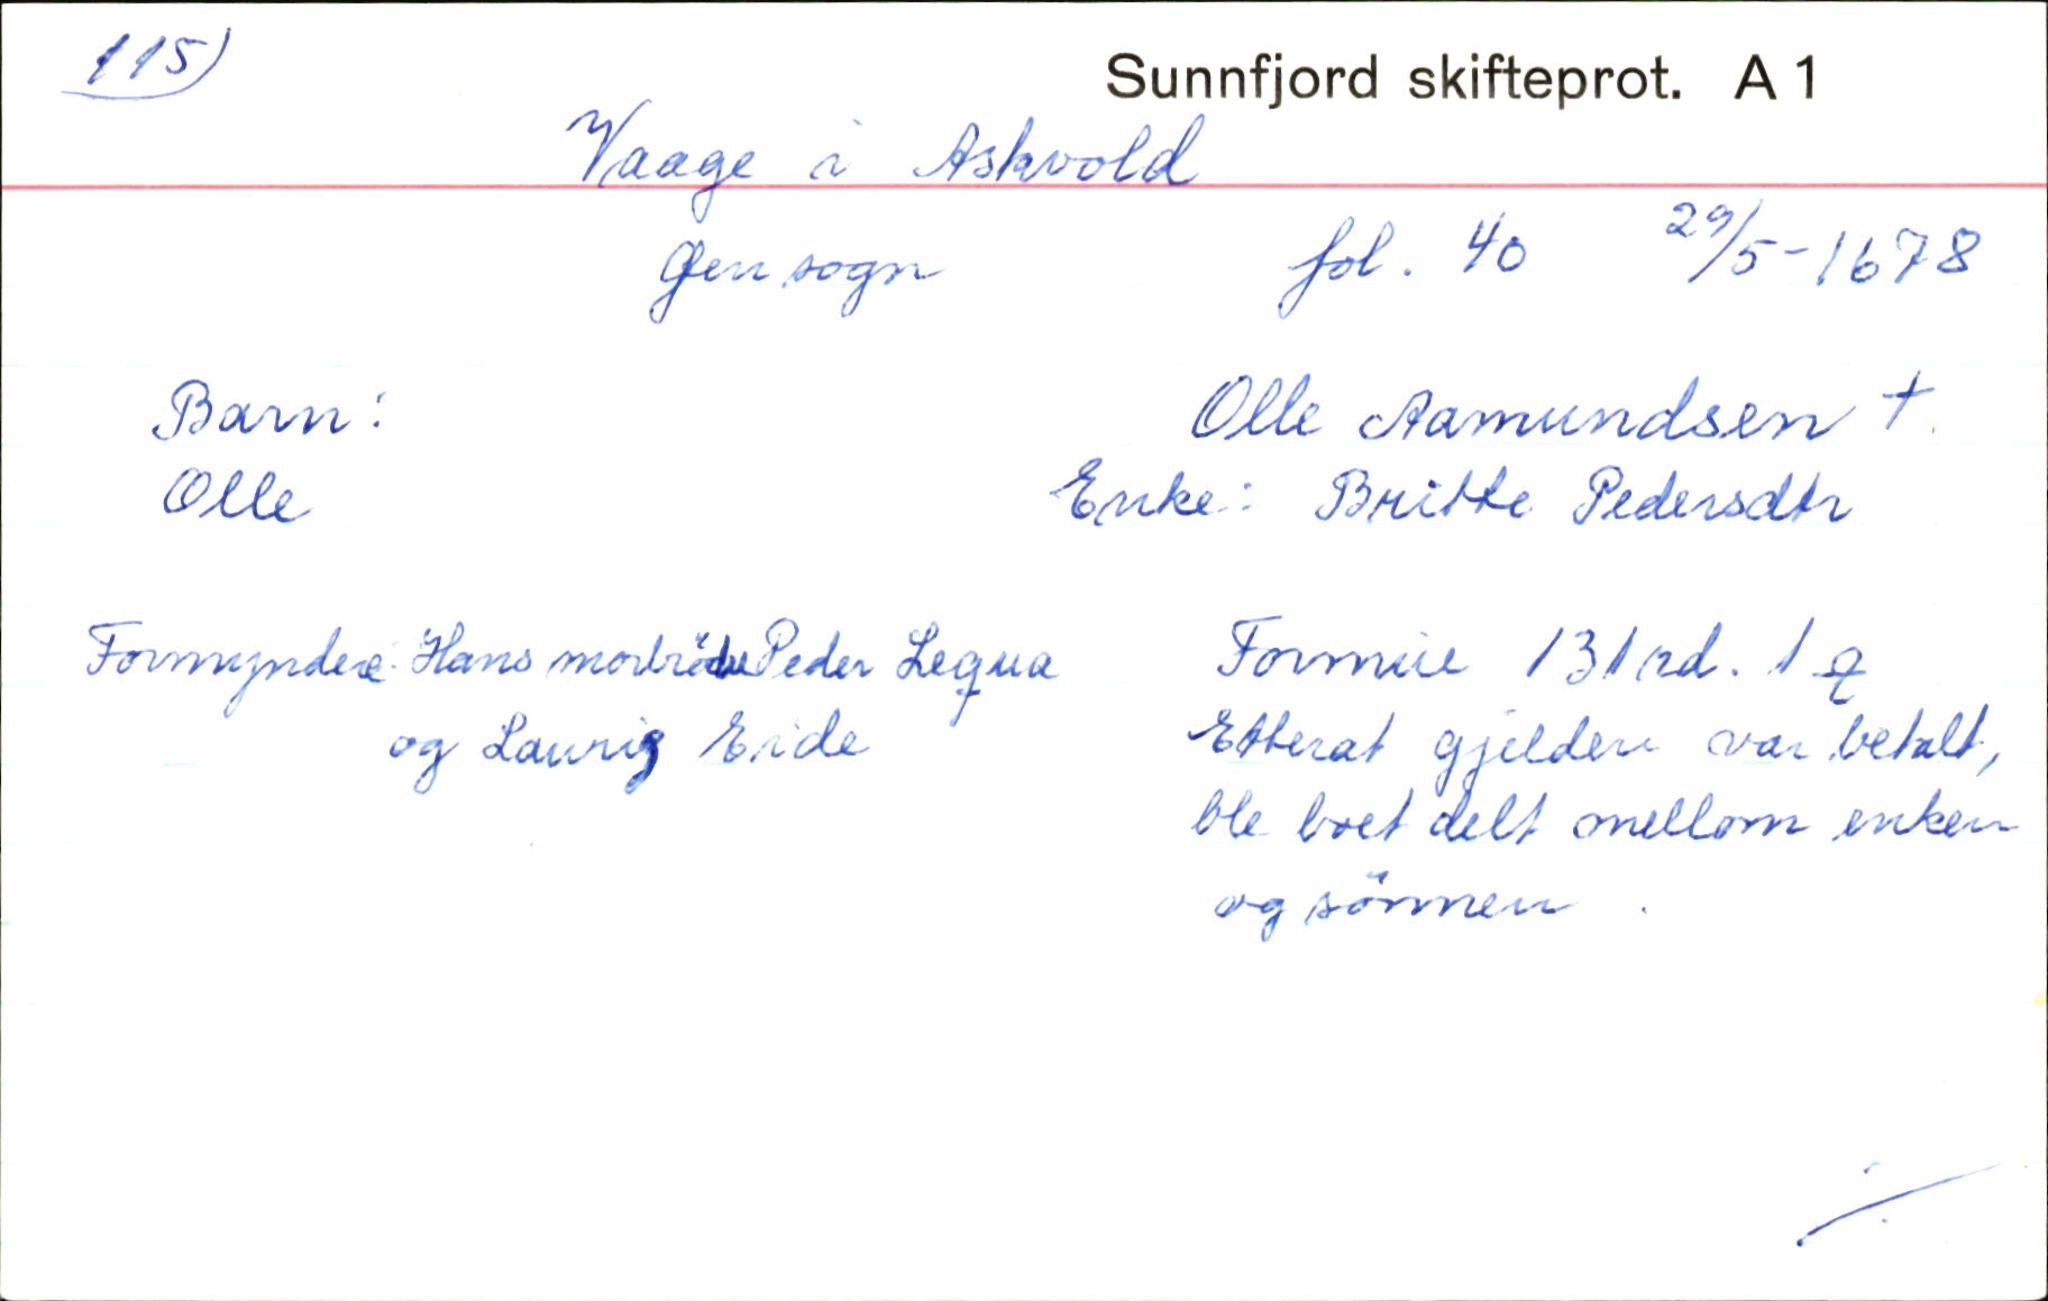 115)
Sunnfjord skifteprot. A 1
Vaage i Askvold
Gen sogn fol. 40 29/5-1678
Barn: Olle Aamundsen +
Olle Enke: Britte Pedersdtr
Formyndere: Hans morbröder Peder Lequa Formue 131 rd. 1
og Laurig Eide Etterat gjelden var betalt,
ble boet delt mellom enken
og sönnen.